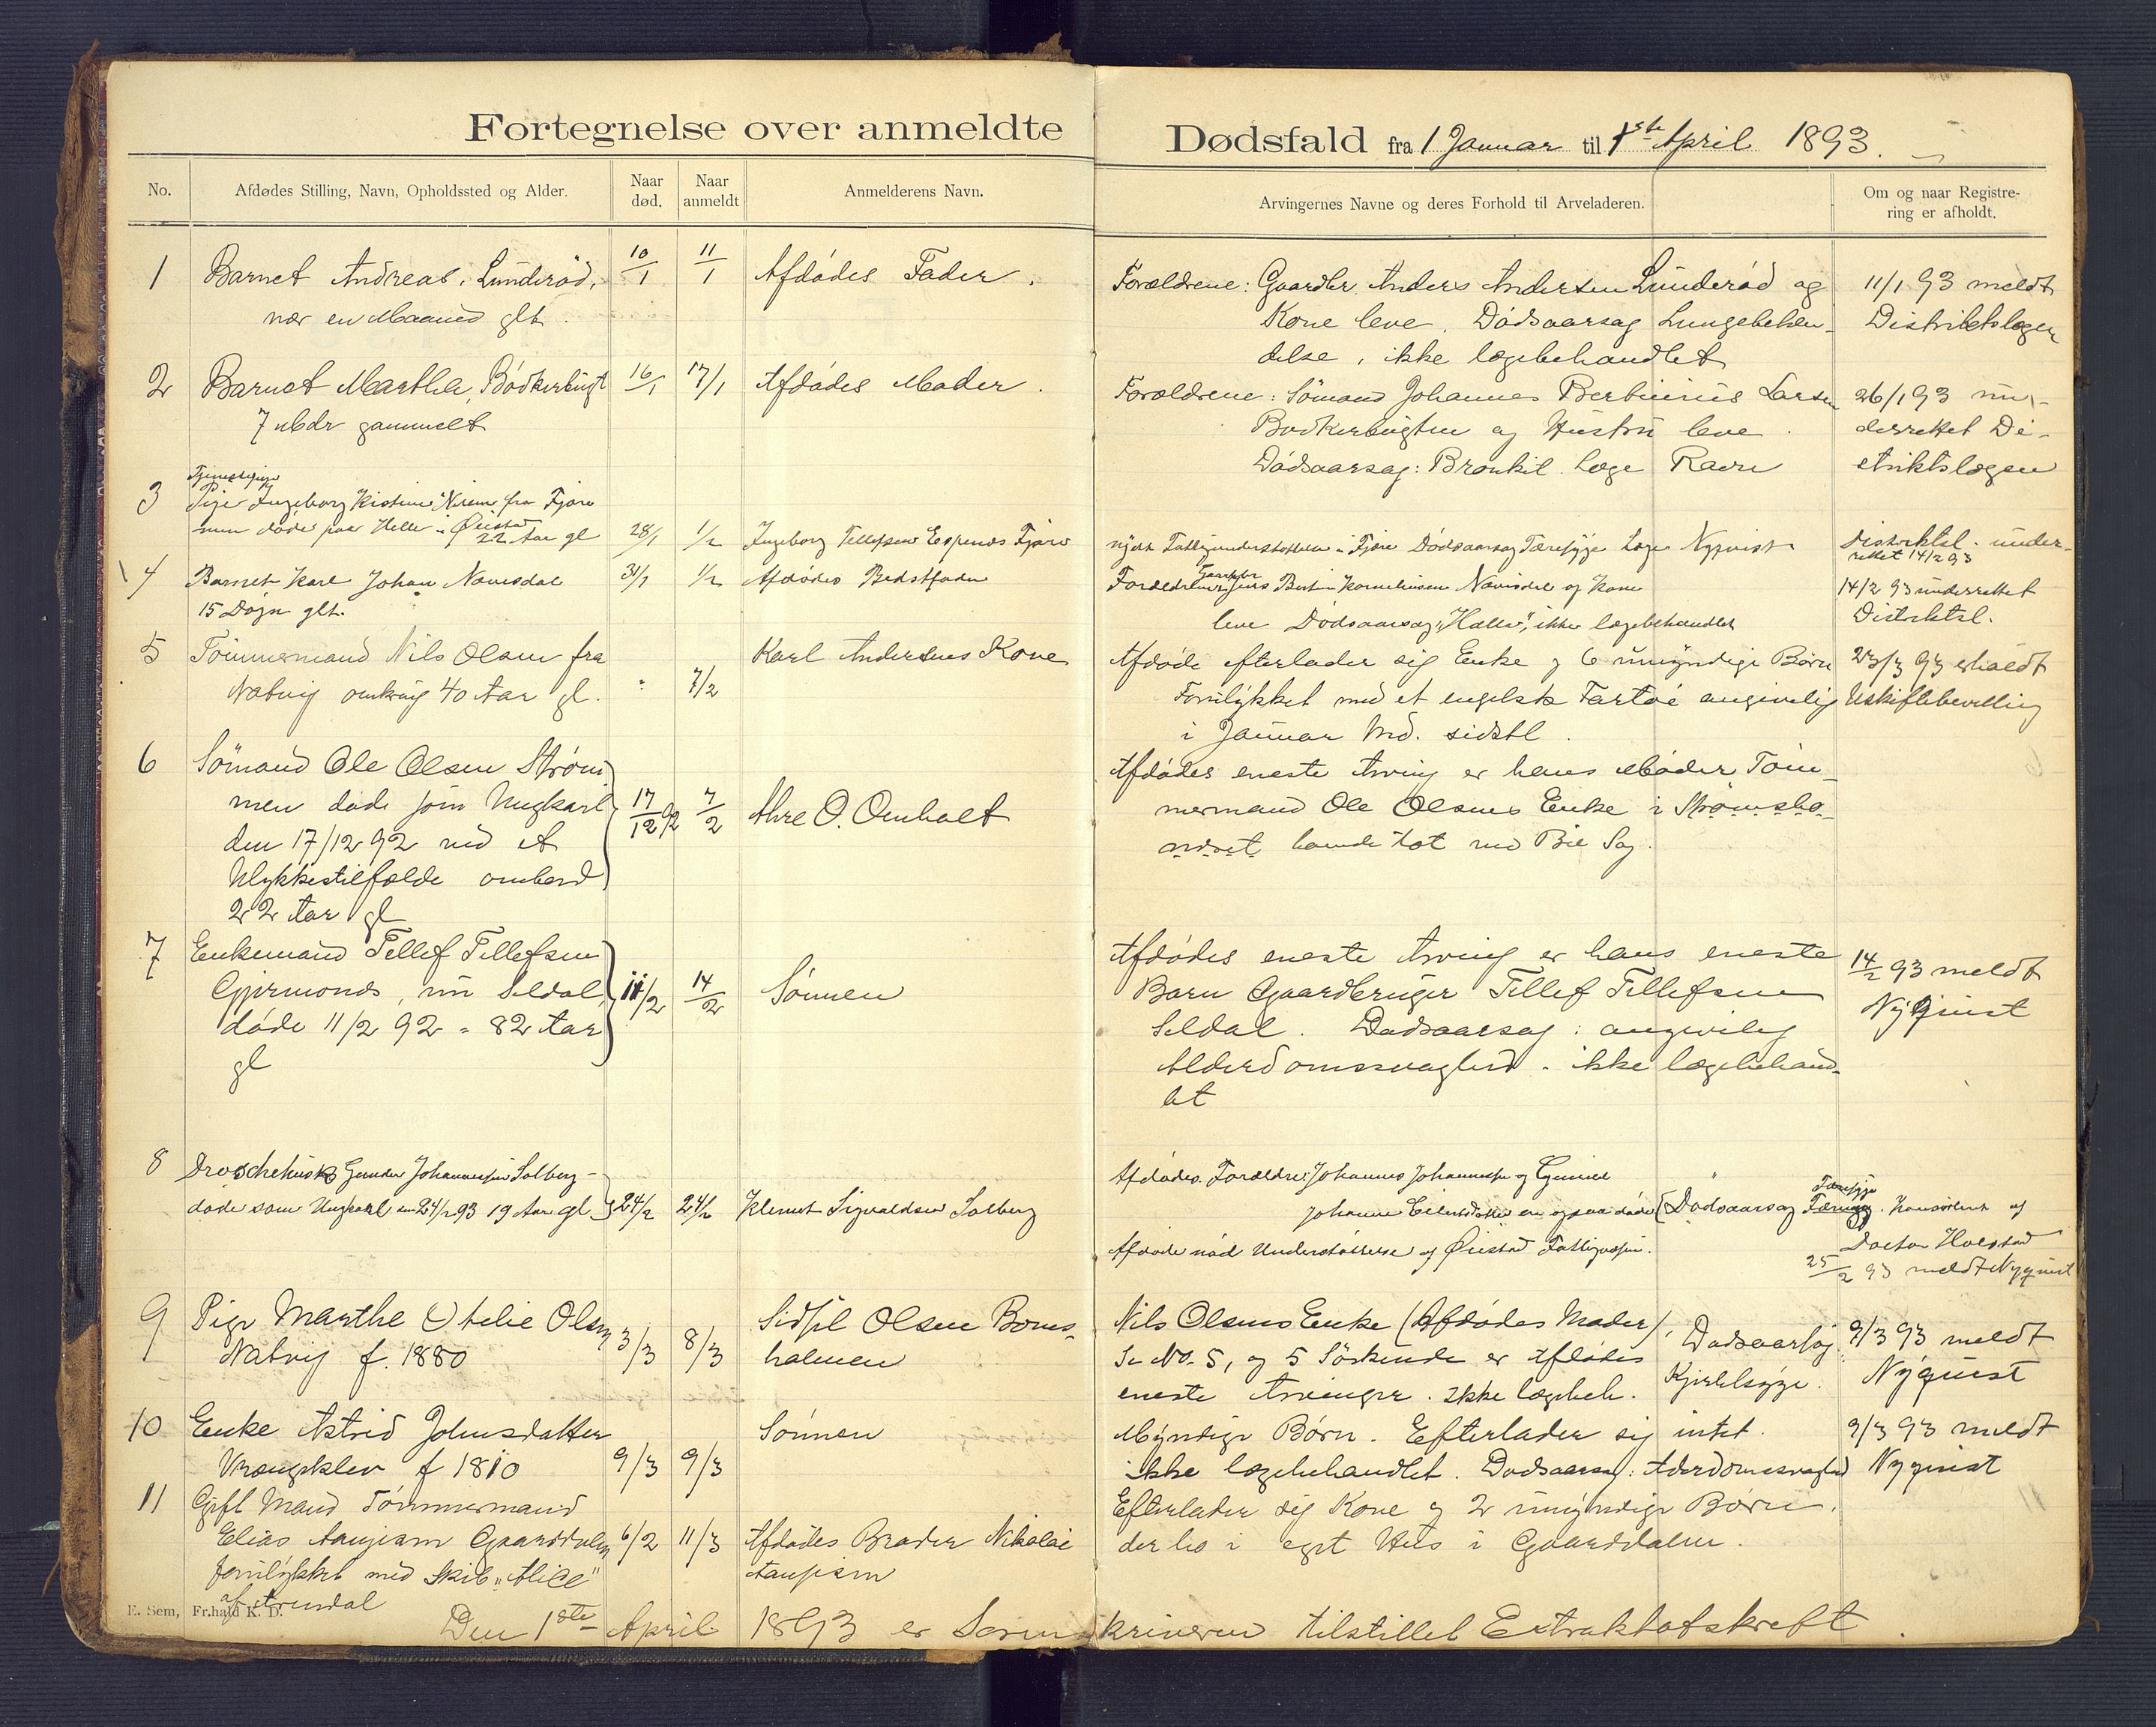 Fortegnelse over anmeldte Dødsfald fra 1 Januar til 1ste April 1893.
No.
Afdødes Stilling, Navn, Opholdssted og Alder.
Naar død.
Naar anmeldt
Anmelderens Navn.
Arvingernes Navne og deres Forhold til Arveladeren.
Om og naar Registrering er afholdt.
1
Barnet Andreas, Lunderød,
nær en Maaned glt.
10/1
11/1
Afdødes Fader.
Forældrene: Gaardbr. Anders Andersen Lunderød og
Kone leve. Dødsaarsag Lungebetæn-
delse, ikke lægebehandlet
11/1 93 meldt
Distriktslægen
2
Barnet Martha, Bødkerbugt
7 Mdr gammelt
16/1
17/1
Afdødes Moder.
Forældrene: Sømand Johannes Bertinius Larsen
Bødkerbugten og Hustru leve.
Dødsaarsag: Bronkit. Læge Ravn
26/1 93 un-
derrettet Di-
striktslægen
3
Tjenestepige
Pige Ingeborg Kistine Nirem fra Fjære
men døde paa Helle i Øiestad
22 Aar gl
28/1
1/2
Ingeborg Tellefsen Espenes Fjære
nydt Fattigunderstøttelse i Fjære Dødsaarsag Tæresyge Læge Nyqvist
Distriktsl. under-
rettet 14/2 93
4
Barnet Karl Johan Navisdal
15 Døgn glt.
31/1
1/2
Afdødes Bedstfader
Forældrene: Gaardbr Jens Bertin Kornelinsen Navisdal og Kone
leve Dødsaarsag "Halls", ikke lægebehandlet
14/2 93 underrettet
Distriktsl.
5
Tømmermand Nils Olsen fra
Natvig omkring 40 Aar gl.
"
7/2
Karl Andersens Kone
Afdøde efterlader sig Enke og 6 umyndige Børn
Forulykket med et engelsk Fartøi angivelig
i Januar Md. sidstl.
23/3 93 erholdt
Uskiftebevilling
6
Sømand Ole Olsen Strøm-
men døde som Ungkarl
den 17/12 92 ved et
Ulykkestilfælde ombord
22 Aar gl
17/12 92
7/2
Ahre O. Omholt
Afdødes eneste Arving er hans Moder Tøm-
mermand Ole Olsens Enke i Strømsbo-
neset ved Bie Sag.
7
Enkemand Tellef Tellefsen
Gjermonds, nu Seldal,
døde 11/2 92 - 82 Aar
gl
11/2
14/2
Sønnen
Afdødes eneste Arving er hans eneste
Barn Gaardbruger Tellef Tellefsen
Seldal. Dødsaarsag: angivelig
Alderdomssvaghed. ikke lægebehand-
let
14/2 93 meldt
Nyquist
8
Droschekusk Gunder Johannessen Solberg -
døde som Ungkarl den 24/2 93 19 Aar gl
24/2
24/2
Klemet Sigvaldsen Solberg
Afdødes Forældre: Johannes Johannessen og Gunild
Johanne Eilertsdatter er ogsaa døde
Dødsaarsag Tæresyge. Konsuleret af
Doctor Holstad
Afdøde nød Understøttelse af Øiestad Fattigvæsen.
25/2 93 meldt Nyquist
9
Pige Marthe Otelie Olsen
Natvig f. 1880
3/3
8/3
Sidsel Olsen Borns-
holmen
Nils Olsens Enke (Afdødes Moder),
Se No. 5, og 5 Søskende er Afdødes
eneste Arvinger. Ikke lægebeh.
Dødsaarsag:
Kjertelsyge.
9/3 93 meldt
Nyquist
10
Enke Astrid Johnsdatter
Vrængsklev f 1810
9/3
9/3
Sønnen
Myndige Børn. Efterlader sig intet.
ikke lægebehandlet. Dødsaarsag: Aderdomssvaghed
9/3 93 meldt
Nyquist
11
Gift Mand Tømmermand
Elias Aanjesen Gaarddalen
forulykket med Skib "Alice"
af Arendal
6/2
11/3
Afdødes Broder Nikolai
Aanjesen
Efterlader sig Kone og 2 umyndige Børn.
der bo i eget Hus i Gaarddalen.
E. Sem, Fr.hald K. D.
Den 1ste April 1893 er Sorenskriveren tilstillet Extraktafskrift.